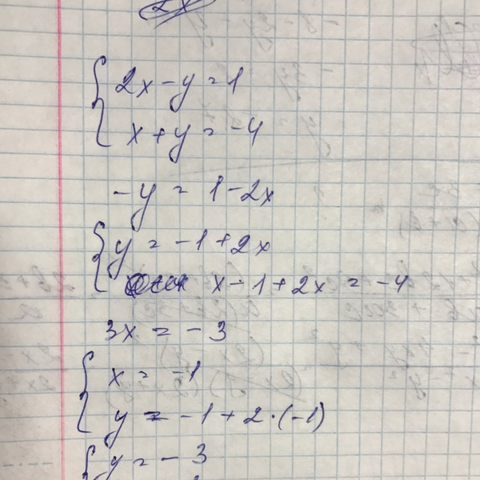 2x - y = 1
x + y = -4
-y = 1 - 2x
y = -1 + 2x
x - 1 + 2x = -4
3x = -3
x = -1
y = -1 + 2·(-1)
y = -3